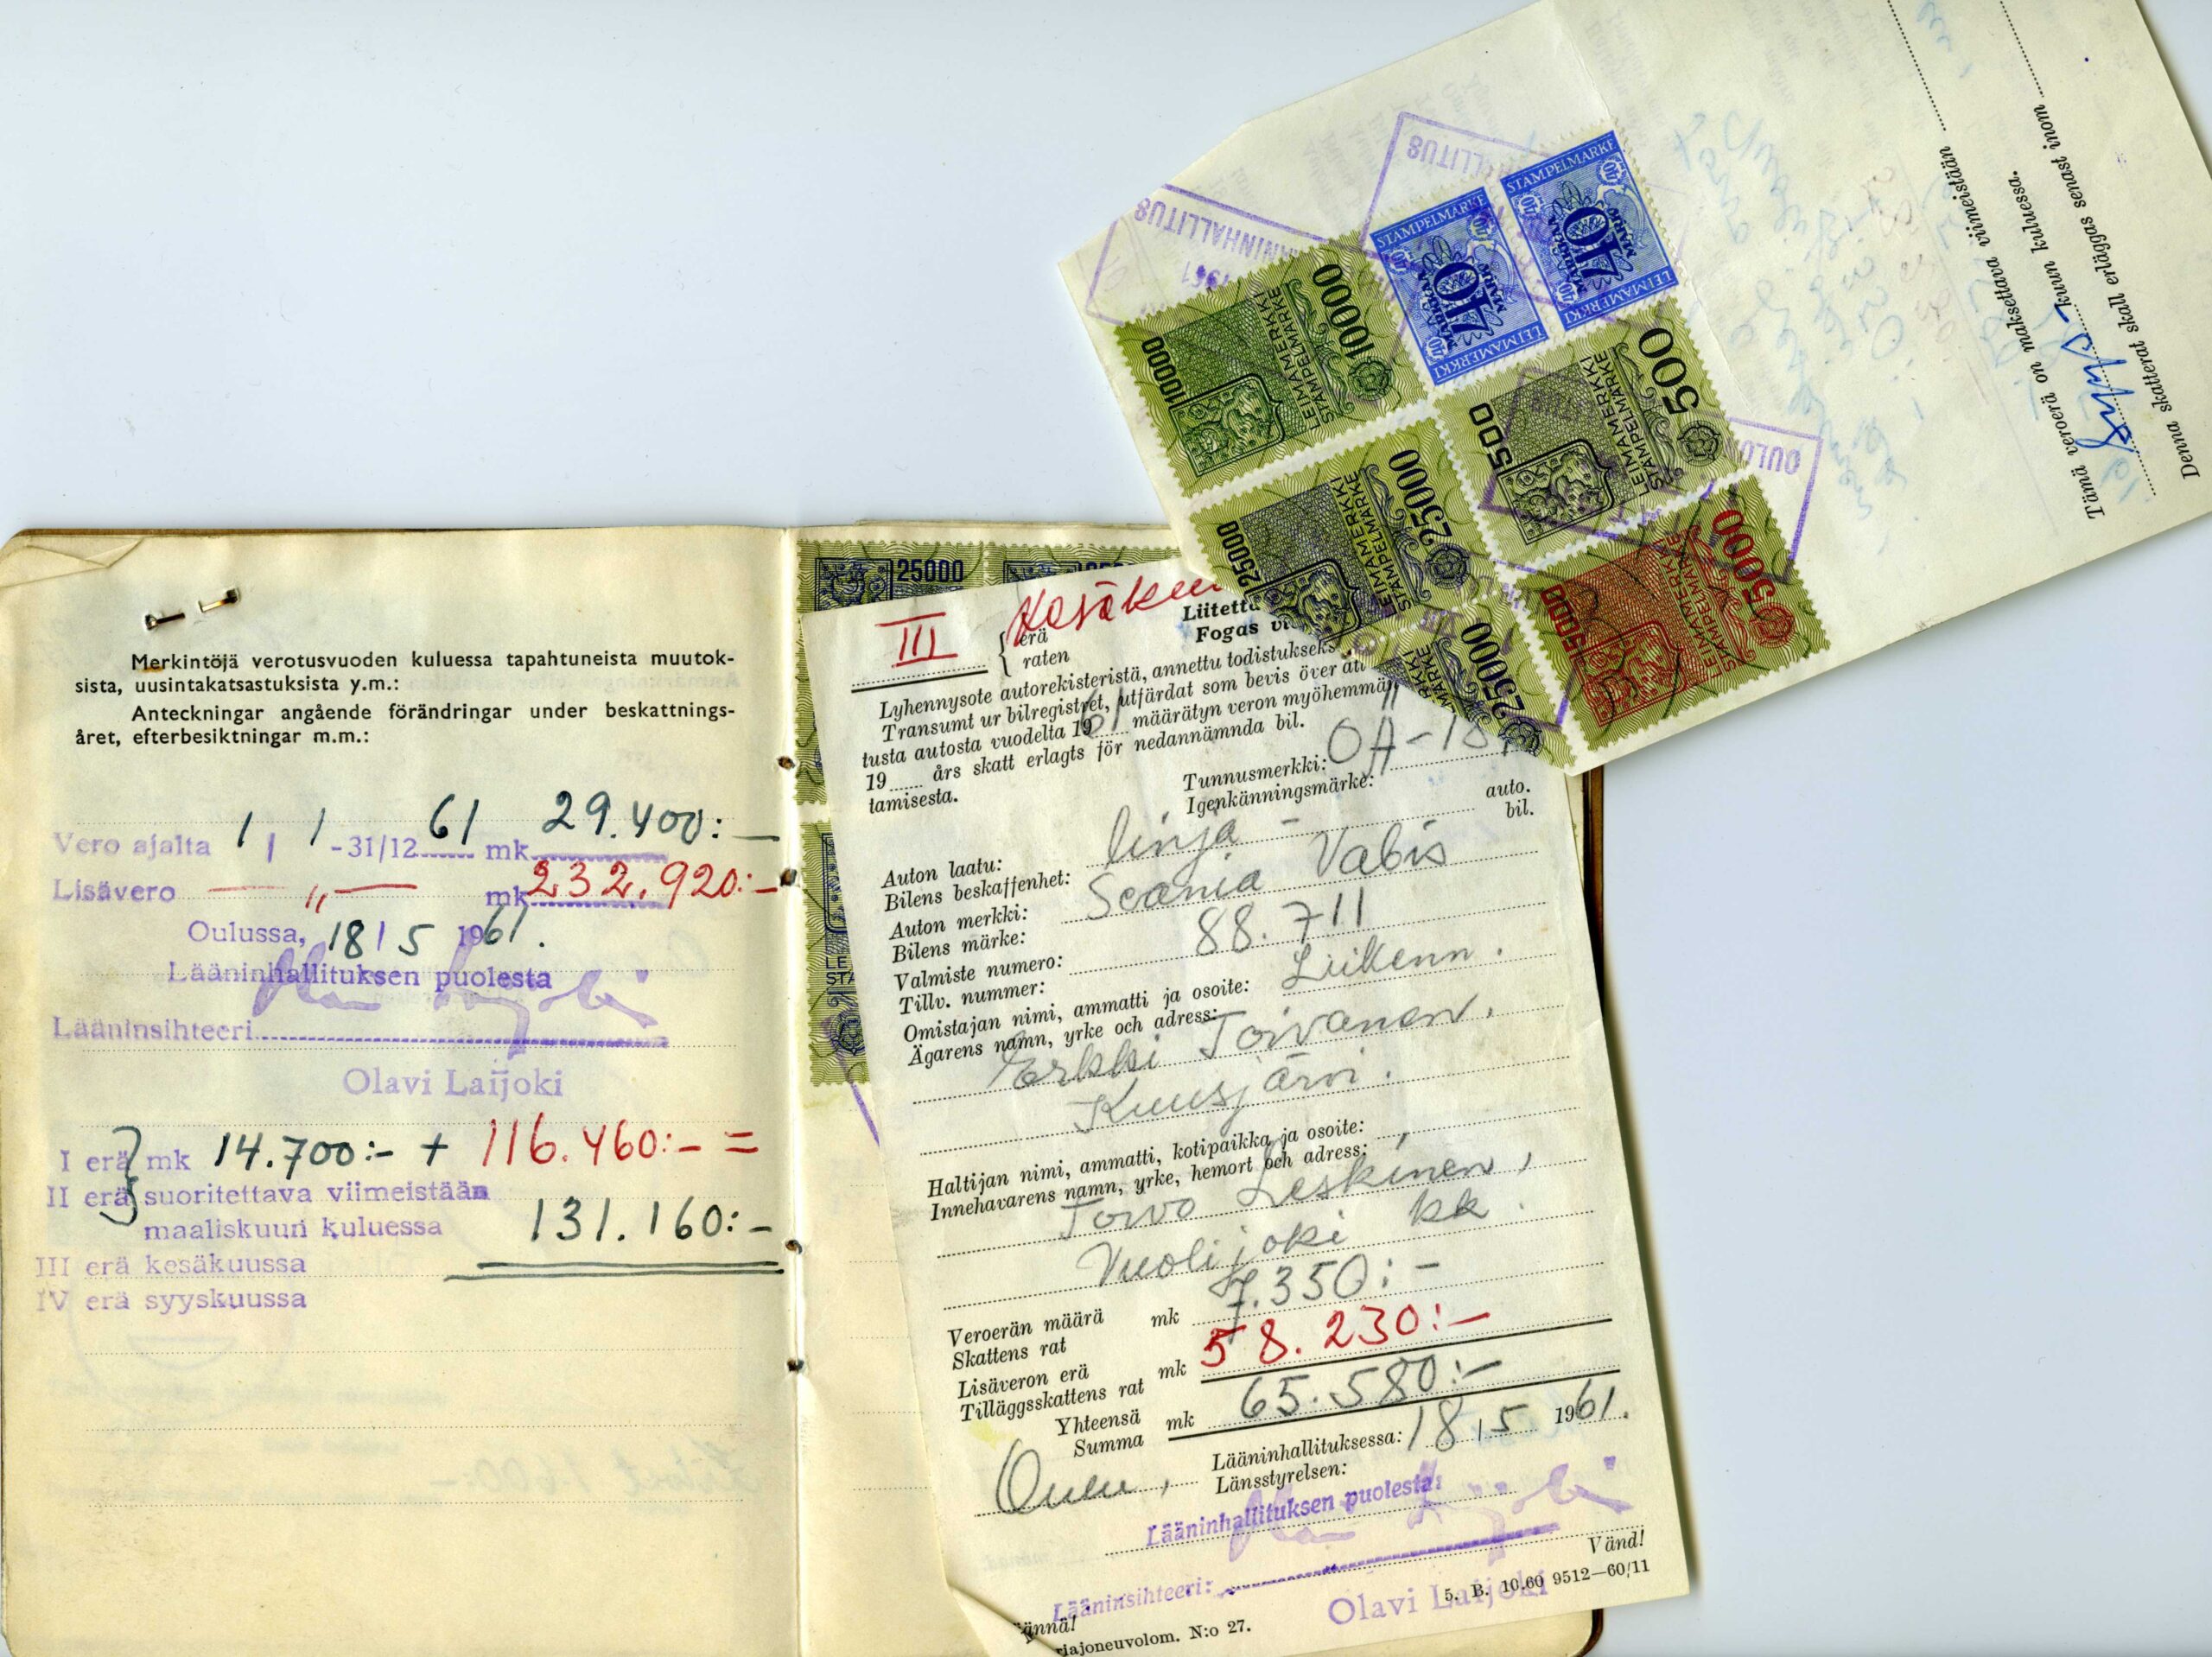 Merkintöjä verotusvuoden kuluessa tapahtuneista muutok-
sista, uusintakatsastuksista y.m.:
Anteckningar angående förändringar under beskattnings-
året, efterbesiktningar m.m.:
Vero ajalta 1 / 1 -31/12 61 mk 29.400:-
Lisävero — „ — mk 232.920:-
Oulussa, 18 / 5 1961.
Lääninhallituksen puolesta
Lääninsihteeri
Olavi Laijoki
I erä mk 14.700:- + 116.460:- =
II erä suoritettava viimeistään
maaliskuun kuluessa 131.160:-
III erä kesäkuussa
IV erä syyskuussa
25000
III
erä
raten
Liitettä
Fogas
Lyhennysote autorekisteristä, annettu todistukseks
Transumt ur bilregistret, utfärdat som bevis över att
tusta autosta vuodelta 1961 määrätyn veron myöhemmä
19 års skatt erlagts för nedannämnda bil.
tamisesta.
Tunnusmerkki: OA-18
Igenkänningsmärke:
Auton laatu: linja- auto.
Bilens beskaffenhet: bil.
Auton merkki: Scania Vabis
Bilens märke:
Valmiste numero: 88.711
Tillv. nummer:
Omistajan nimi, ammatti ja osoite: Liikenn.
Ägarens namn, yrke och adress:
Erkki Toivanen.
Kuusjärvi.
Haltijan nimi, ammatti, kotipaikka ja osoite:
Innehavarens namn, yrke, hemort och adress:
Toivo Leskinen,
Vuolijoki kk.
Veroerän määrä mk 7.350:-
Skattens rat
Lisäveron erä mk 58.230:-
Tilläggsskattens rat
Yhteensä mk 65.580:-
Summa
Oulu, Lääninhallituksessa: 18 / 5 1961.
Länsstyrelsen:
Lääninhallituksen puolesta:
Vänd!
Lääninsihteeri:
Olavi Laijoki
5. B. 10.60 9512—60/11
ännä!
iajoneuvolom. N:o 27.
LÄÄNINHALLITUS
1961
HALLITUS
10000 LEIMAMERKKI STAMPELMARKE 10000
STAMPELMARKE 40 MARKKAA MARK LEIMAMERKKI
STAMPELMARKE 40 MARKKAA MARK LEIMAMERKKI
25000 LEIMAMERKKI STAMPELMARKE 25000
500 LEIMAMERKKI STAMPELMARKE 500
25000
5000 LEIMAMERKKI STAMPELMARKE 5000
OULUN
Tämä veroerä on maksettava viimeistään
kuun kuluessa.
Denna skatterat skall erläggas senast inom